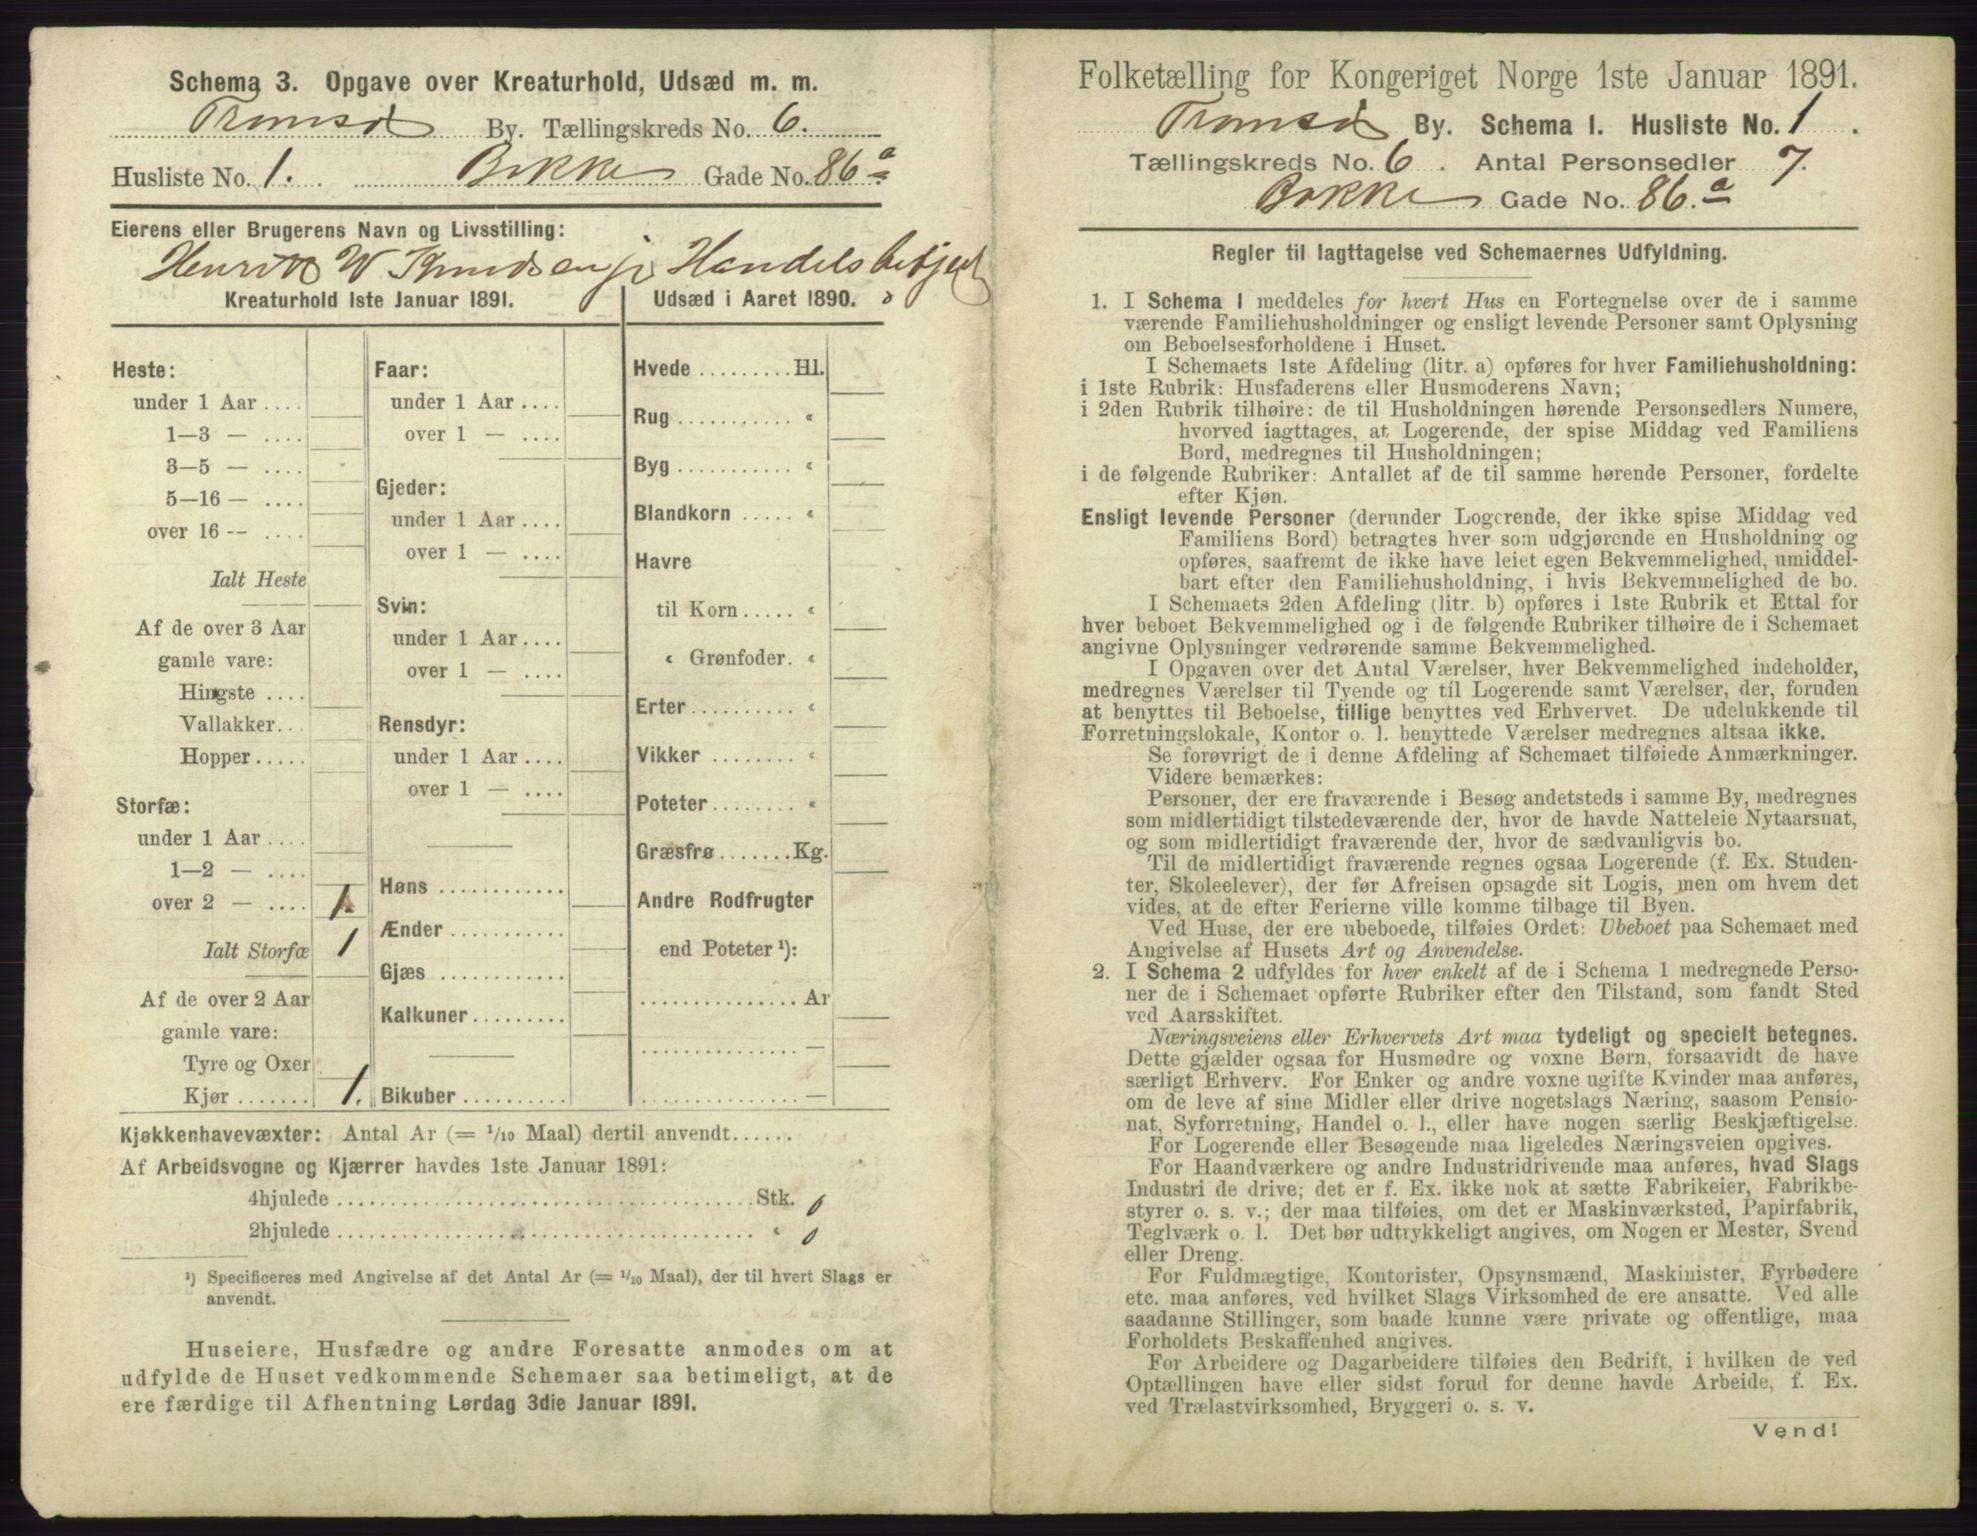 Schema 3. Opgave over Kreaturhold, Udsæd m. m.
Tromsø By. Tællingskreds No. 6.
Husliste No. 1. Bokke Gade No. 86 a
Eierens eller Brugerens Navn og Livsstilling:
W Knudsen Handelsbetjent
Kreaturhold 1ste Januar 1891.
Heste:
under 1 Aar ....
1—3 — ....
3—5 — ....
5—16 — ....
over 16 -- ....
Ialt Heste
Af de over 3 Aar
gamle vare:
Hingste ....
Vallakker..
Hopper.....
Storfæ:
under 1 Aar ....
1—2 — ....
over 2 — .... 1
Ialt Storfæ 1
Af de over 2 Aar
gamle vare:
Tyre og Oxer
Kjør ....... 1.
Faar:
under 1 Aar ....
over 1 — ....
Gjeder:
under 1 Aar ....
over 1 — ....
Svin:
under 1 Aar ....
over 1 — ....
Rensdyr:
under 1 Aar ....
over 1 — ....
Høns ............
Ænder ...........
Gjæs ............
Kalkuner.........
Bikuber ..........
Udsæd i Aaret 1890.
Hvede ......... Hl.
Rug ........... «
Byg ........... «
Blandkorn ..... «
Havre
til Korn ..... «
« Grønfoder. «
Erter.......... «
Vikker ........ «
Poteter........ «
Græsfrø.......Kg.
Andre Rodfrugter
end Poteter ¹):
............... Ar
............... —
............... —
Kjøkkenhavevæxter: Antal Ar (= 1/10 Maal) dertil anvendt......
Af Arbeidsvogne og Kjærrer havdes 1ste Januar 1891:
4hjulede ........................................ Stk. 0
2hjulede ........................................ « 0
¹) Specificeres med Angivelse af det Antal Ar (= 1/10 Maal), der til hvert Slags er
anvendt.
Huseiere, Husfædre og andre Foresatte anmodes om at
udfylde de Huset vedkommende Schemaer saa betimeligt, at de
ere færdige til Afhentning Lørdag 3die Januar 1891.
Folketælling for Kongeriget Norge 1ste Januar 1891.
Tromsø By. Schema 1. Husliste No. 1.
Tællingskreds No. 6. Antal Personsedler 7.
Bokke Gade No. 86. a
Regler til Iagttagelse ved Schemaernes Udfyldning.
1. I Schema 1 meddeles for hvert Hus en Fortegnelse over de i samme
værende Familiehusholdninger og ensligt levende Personer samt Oplysning
om Beboelsesforholdene i Huset.
I Schemaets 1ste Afdeling (litr. a) opføres for hver Familiehusholdning:
i 1ste Rubrik: Husfaderens eller Husmoderens Navn;
i 2den Rubrik tilhøire: de til Husholdningen hørende Personsedlers Numere,
hvorved iagttages, at Logerende, der spise Middag ved Familiens
Bord, medregnes til Husholdningen;
i de følgende Rubriker: Antallet af de til samme hørende Personer, fordelte
efter Kjøn.
Ensligt levende Personer (derunder Logerende, der ikke spise Middag ved
Familiens Bord) betragtes hver som udgjørende en Husholdning og
opføres, saafremt de ikke have leiet egen Bekvemmelighed, umiddel-
bart efter den Familiehusholdning, i hvis Bekvemmelighed de bo.
I Schemaets 2den Afdeling (litr. b) opføres i 1ste Rubrik et Ettal for
hver beboet Bekvemmelighed og i de følgende Rubriker tilhøire de i Schemaet
angivne Oplysninger vedrørende samme Bekvemmelighed.
I Opgaven over det Antal Værelser, hver Bekvemmelighed indeholder,
medregnes Værelser til Tyende og til Logerende samt Værelser, der, foruden
at benyttes til Beboelse, tillige benyttes ved Erhvervet. De udelukkende til
Forretningslokale, Kontor o. l. benyttede Værelser medregnes altsaa ikke.
Se forøvrigt de i denne Afdeling af Schemaet tilføiede Anmærkninger.
Videre bemærkes:
Personer, der ere fraværende i Besøg andetsteds i samme By, medregnes
som midlertidigt tilstedeværende der, hvor de havde Natteleie Nytaarsnat,
og som midlertidigt fraværende der, hvor de sædvanligvis bo.
Til de midlertidigt fraværende regnes ogsaa Logerende (f. Ex. Studen-
ter, Skoleelever), der før Afreisen opsagde sit Logis, men om hvem det
vides, at de efter Ferierne ville komme tilbage til Byen.
Ved Huse, der ere ubeboede, tilføies Ordet: Ubeboet paa Schemaet med
Angivelse af Husets Art og Anvendelse.
2. I Schema 2 udfyldes for hver enkelt af de i Schema 1 medregnede Perso-
ner de i Schemaet opførte Rubriker efter den Tilstand, som fandt Sted
ved Aarsskiftet.
Næringsveiens eller Erhvervets Art maa tydeligt og specielt betegnes.
Dette gjælder ogsaa for Husmødre og voxne Børn, forsaavidt de have
særligt Erhverv. For Enker og andre voxne ugifte Kvinder maa anføres,
om de leve af sine Midler eller drive nogetslags Næring, saasom Pensio-
nat, Syforretning, Handel o. l., eller have nogen særlig Beskjæftigelse.
For Logerende eller Besøgende maa ligeledes Næringsveien opgives.
For Haandværkere og andre Industridrivende maa anføres, hvad Slags
Industri de drive; det er f. Ex. ikke nok at sætte Fabrikeier, Fabrikbe-
styrer o. s. v.; der maa tilføies, om det er Maskinværksted, Papirfabrik,
Teglværk o. l. Det bør udtrykkeligt angives, om Nogen er Mester, Svend
eller Dreng.
For Fuldmægtige, Kontorister, Opsynsmænd, Maskinister, Fyrbødere
etc. maa anføres, ved hvilket Slags Virksomhed de ere ansatte. Ved alle
saadanne Stillinger, som baade kunne være private og offentlige, maa
Forholdets Beskaffenhed angives.
For Arbeidere og Dagarbeidere tilføies den Bedrift, i hvilken de ved
Optællingen have eller sidst forud for denne havde Arbeide, f. Ex.
ved Trælastvirksomhed, Bryggeri o. s. v.
Vend!